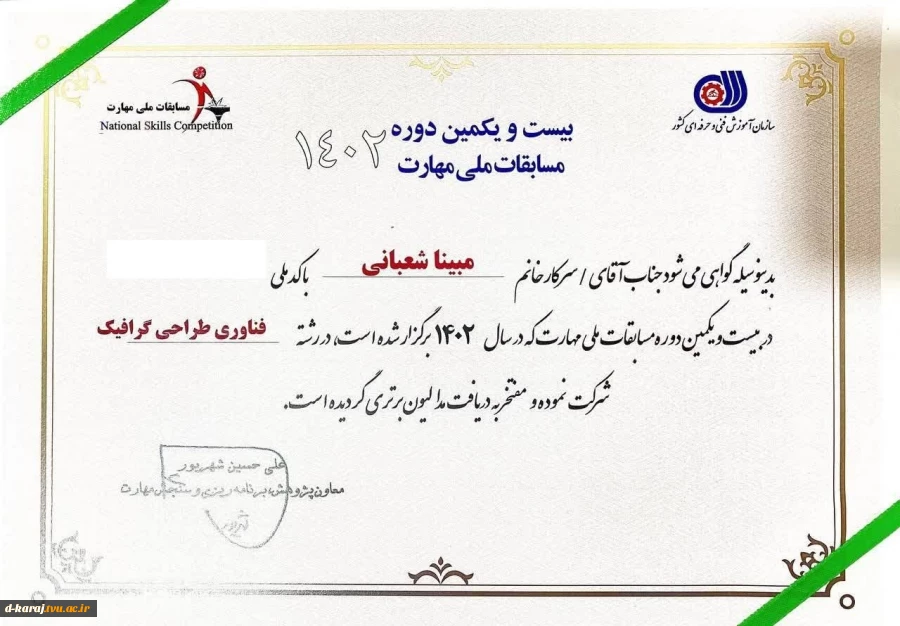 مسابقات ملی مهارت
National Skills Competition
سازمان آموزش فنی و حرفه ای کشور
بیست و یکمین دوره
مسابقات ملی مهارت
۱۴۰۲
بدینوسیله گواهی می شود جناب آقای / سرکار خانم مبینا شعبانی با کد ملی
در بیست و یکمین دوره مسابقات ملی مهارت که در سال ۱۴۰۲ برگزار شده است، در رشته فناوری طراحی گرافیک
شرکت نموده و مفتخر به دریافت مدالیون برتری گردیده است.
علی حسین شهریور
معاون پژوهش، برنامه ریزی و سنجش مهارت
d-karaj.tvu.ac.ir